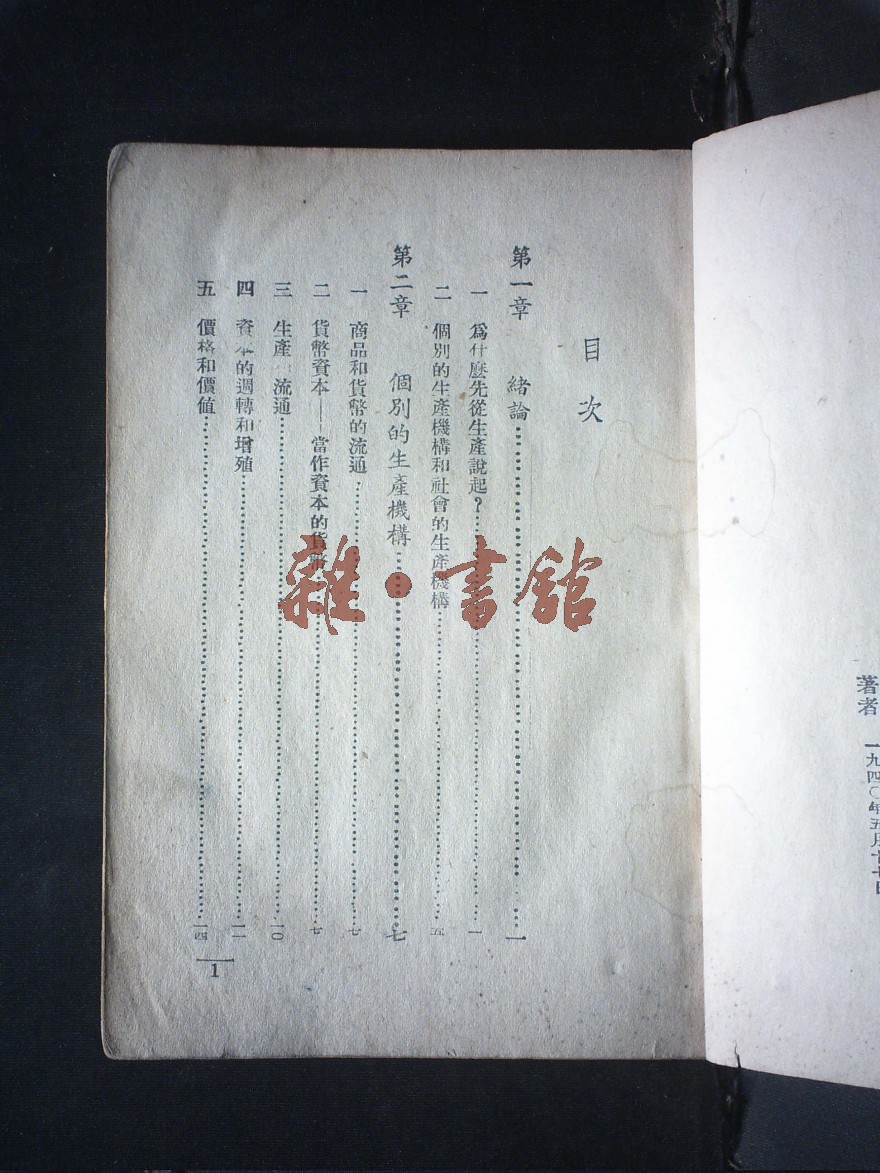 著者 一九四〇年五月廿七日
目次
第一章 緒論……一
一 爲什麽先從生產說起?……一
二 個別的生產機構和社會的生產機構……五
第二章 個別的生產機構……七
一 商品和貨幣的流通……七
二 貨幣資本——當作資本的貨幣……七
三 生產 流通……一〇
四 資本的週轉和增殖……一一
五 價格和價値……一四
1
雜·書館